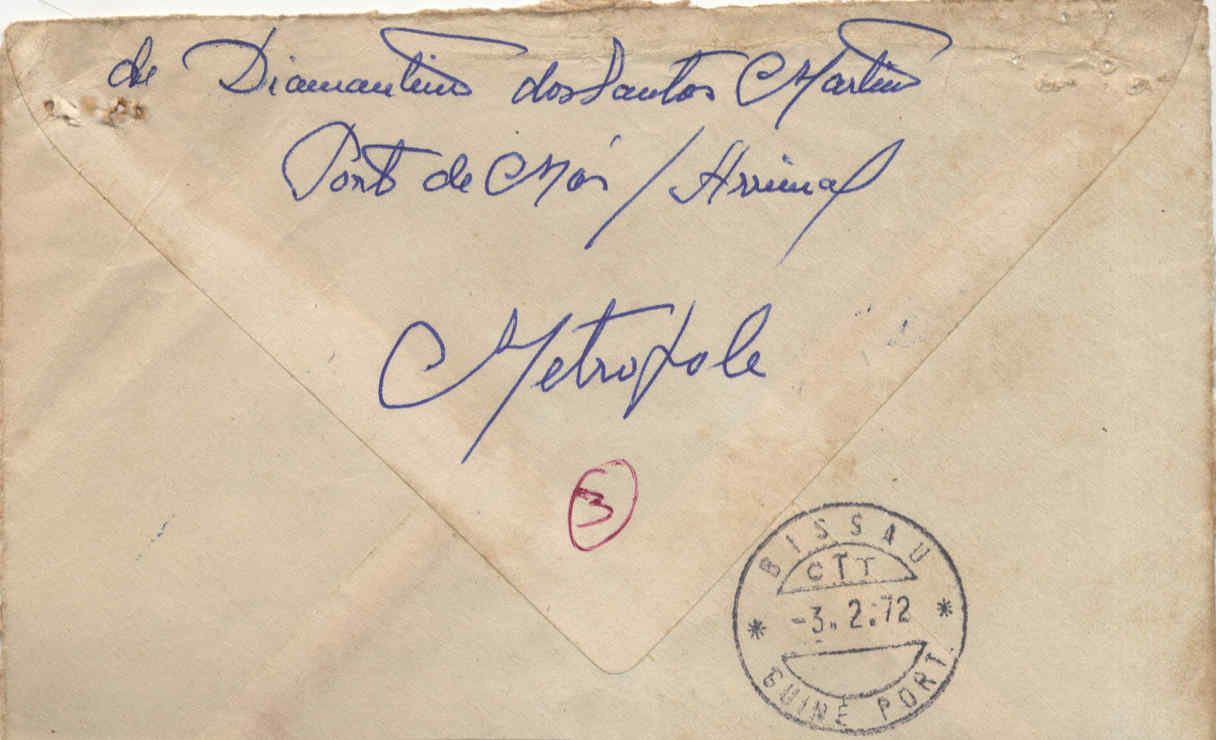 de Diamantino dos Santos Martins
Porto de Mós / Arrimal
Metropole
3
BISSAU
CTT
-3. 2.72
* *
GUINÉ PORT.